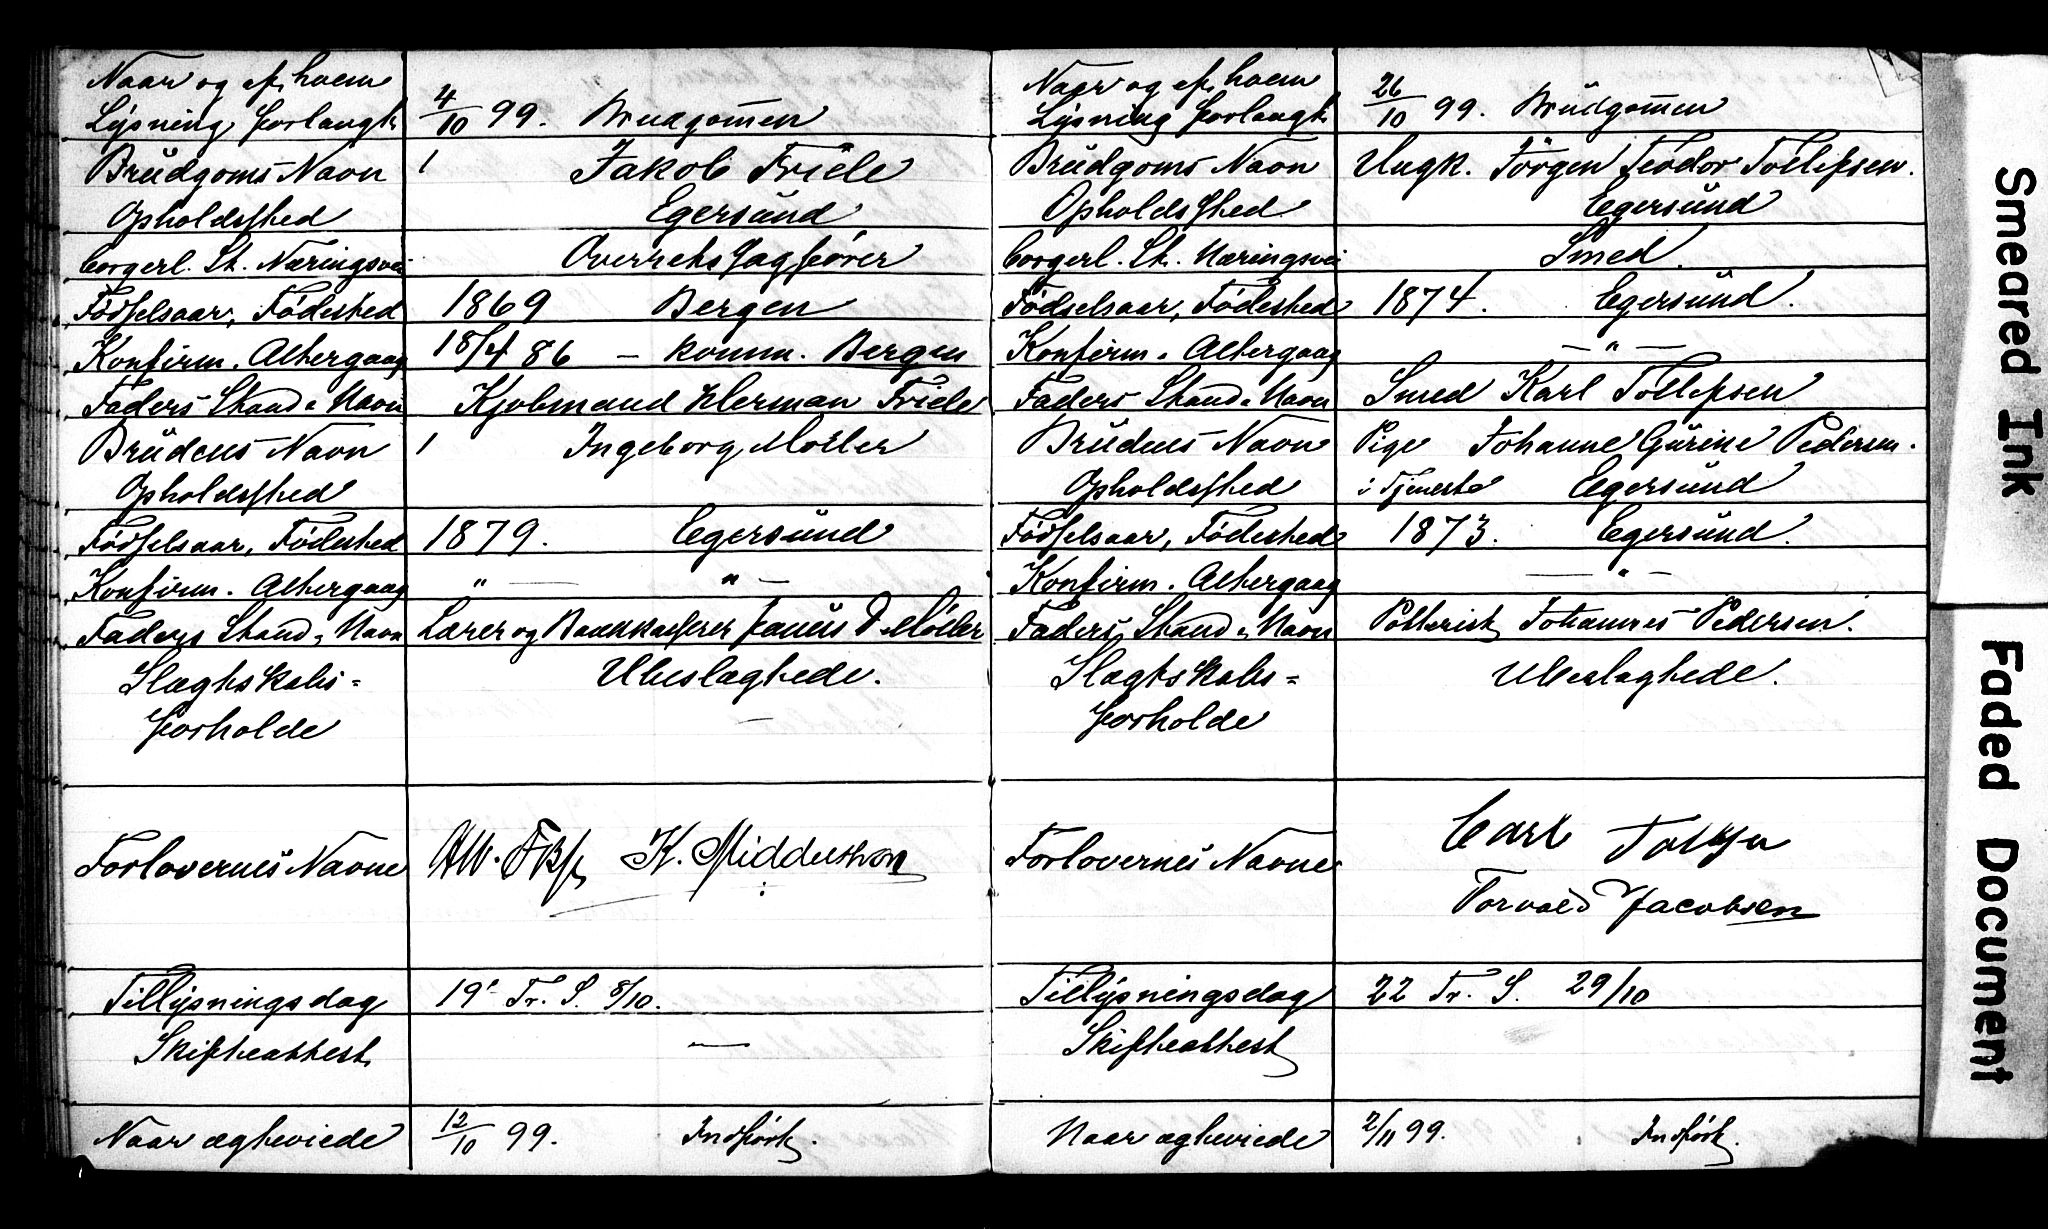 Naar og af hvem
Lysning forlangt 4/10 99. Brudgommen
Brudgoms Navn 1 Jakob Friele
Opholdssted Egersund
borgerl. St. Næringsvei Overretssagfører
Fødselsaar, Fødested 1869 Bergen
Konfirm. Altergang 18/4 86 — komm. Bergen
Faders Stand & Navn Kjøbmand Herman Friele
Brudens Navn 1 Ingeborg Møller
Opholdssted
Fødselsaar, Fødested 1879. Egersund
Konfirm. Altergang " — " —
Faders Stand & Navn Lærer og Bankkasserer Møller
Slægtskabs=
forholde Ubeslægtede.
Forlovernes Navne K. Middelthon
Tillysningsdag 19' Tr. S. 8/10.
Skifteattest —
Naar ægteviede 12/10 99. Indført.
Naar og af hvem
Lysning forlangt 26/10 99. Brudgommen
Brudgoms Navn Ungk. Jörgen Teodor Tollefsen.
Opholdssted Egersund
borgerl. St. Næringsvei Smed.
Fødselsaar, Fødested 1874. Egersund.
Konfirm. Altergang — " —
Faders Stand & Navn Smed Karl Tollefsen
Brudens Navn Pige Johanne Gurine Pedersen.
Opholdssted i Tjeneste Egersund
Fødselsaar, Fødested 1873. Egersund.
Konfirm. Altergang — " —
Faders Stand & Navn Johannes Pedersen.
Slægtskabs=
forholde Ubeslægtede.
Carl Tollefsen
Forlovernes Navne
Torvald Jacobsen
Tillysningsdag 22 Tr. S. 29/10
Skifteattest
Naar ægteviede 2/11 99. Indført.
Smeared Ink
Faded Document